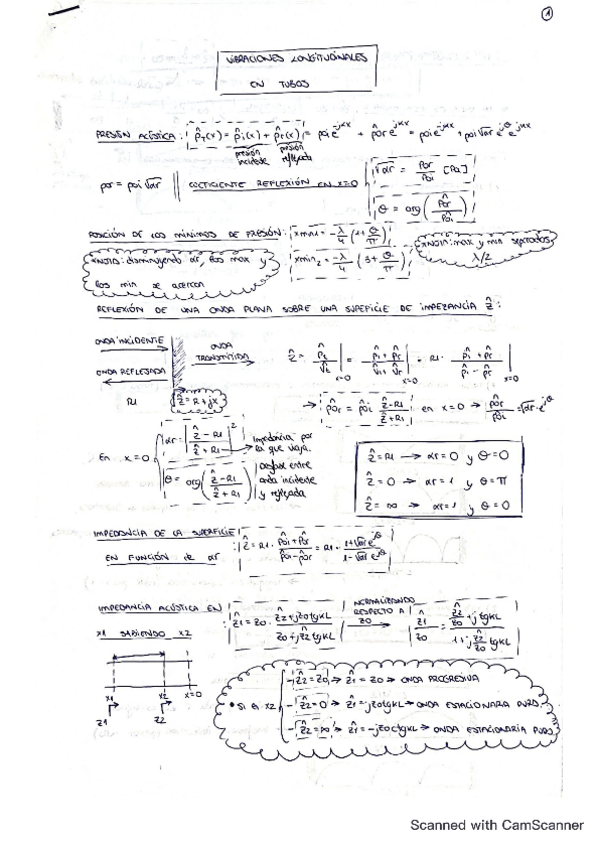 1
VIBRACIONES LONGITUDINALES
EN TUBOS
PRESIÓN ACÚSTICA: p̂T(x) = p̂i(x) + p̂r(x) = poi e^-jkx + p̂or e^jkx = poi e^-jkx + poi √αr e^jθ e^jkx
presión incidente presión reflejada
por = poi √αr || COEFICIENTE REFLEXIÓN EN x=0 √αr = por/poi [Pa]
θ = arg(p̂or/p̂oi)
POSICIÓN DE LOS MÍNIMOS DE PRESIÓN: xmin1 = -λ/4 (1+θ/π)
xmin2 = -λ/4 (3+θ/π)
*NOTA: max y min separados
λ/2
*NOTA: disminuyendo αr, los max y
los min se acercan
REFLEXIÓN DE UNA ONDA PLANA SOBRE UNA SUPERFICIE DE IMPEDANCIA Ẑ:
ONDA INCIDENTE
ONDA REFLEJADA
ONDA
TRANSMITIDA
R1
Ẑ = R + jX
Ẑ = p̂t/v̂t | x=0 = p̂i + p̂r / v̂i + v̂r | x=0 = R1 · p̂i + p̂r / p̂i - p̂r | x=0
→ p̂or = p̂oi Ẑ-R1/Ẑ+R1 en x=0 → p̂or/p̂oi = √αr · e^jθ
En x=0 αr = |Ẑ-R1/Ẑ+R1|² Impedancia por
la que viaja.
θ = arg(Ẑ-R1/Ẑ+R1) Desfase entre
onda incidente
y reflejada
Ẑ = R1 → αr = 0 y θ = 0
Ẑ = 0 → αr = 1 y θ = π
Ẑ = ∞ → αr = 1 y θ = 0
IMPEDANCIA DE LA SUPERFICIE
EN FUNCIÓN de αr : Ẑ = R1 · p̂oi + p̂or / p̂oi - p̂or = R1 · 1+√αr e^jθ / 1-√αr e^jθ
IMPEDANCIA ACÚSTICA EN
x1 SABIENDO x2 : Ẑ1 = Z0 · Ẑ2 + jZ0 tgkL / Z0 + jẐ2 tgkL
NORMALIZANDO
RESPECTO A
Z0 → Ẑ1/Z0 = Ẑ2/Z0 + j tgkL / 1 + j Ẑ2/Z0 tgkL
x1 x2 x=0
Z1 Z2
• Si en x2
- Ẑ2 = Z0 → Ẑ1 = Z0 → ONDA PROGRESIVA
- Ẑ2 = 0 → Ẑ1 = jZ0 tgkL → ONDA ESTACIONARIA PURA
- Ẑ2 = ∞ → Ẑ1 = -jZ0 ctgkL → ONDA ESTACIONARIA PURA
Scanned with CamScanner